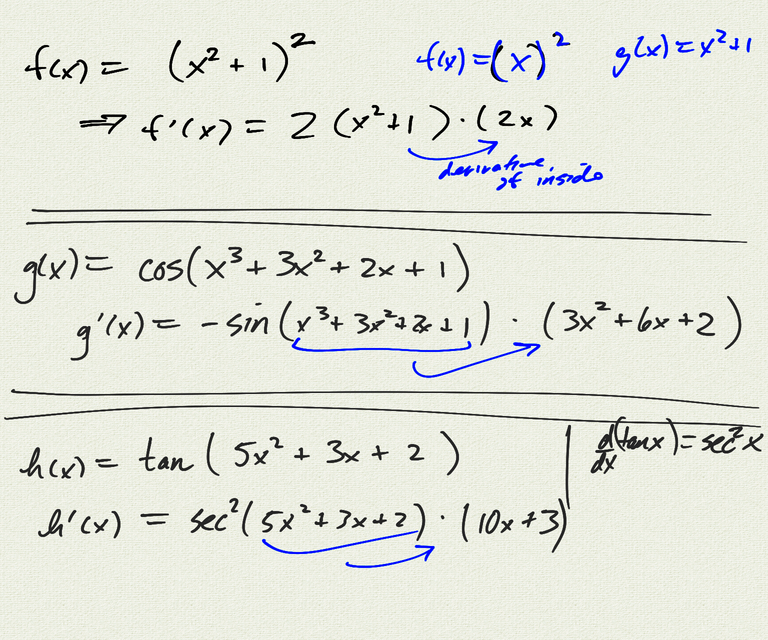 f(x) = (x² + 1)² f(x) = (x)² g(x) = x² + 1
⇒ f'(x) = 2 (x² + 1) · (2x)
derivative
of inside
g(x) = cos(x³ + 3x² + 2x + 1)
g'(x) = -sin(x³ + 3x² + 2x + 1) · (3x² + 6x + 2)
h(x) = tan(5x² + 3x + 2) d/dx(tan x) = sec² x
h'(x) = sec²(5x² + 3x + 2) · (10x + 3)